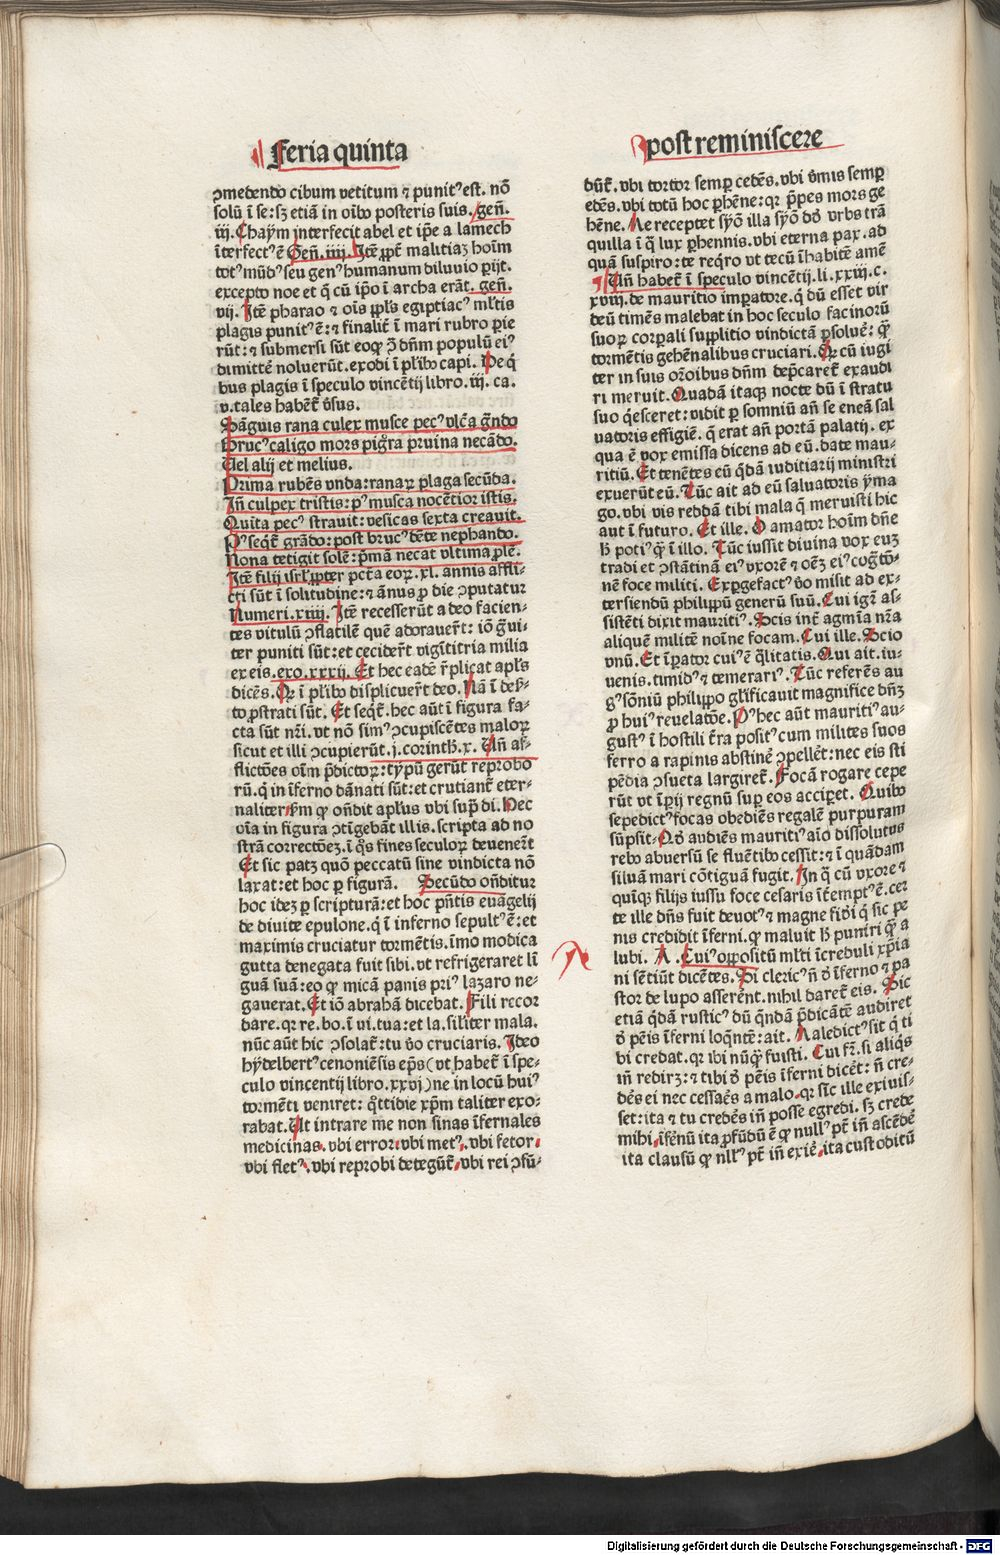 Feria quinta
ꝯmedendo cibum vetitum ⁊ punitꝰ est. nō
solū ī se: sꝫ etiā in oībo posteris suis. gen̄.
iij. Chaẏm interfecit abel et ip̄e a lamech
īterfectꝰ ē Gen̄. iiij. Itē ꝓpt̄ malitiaꝫ hoīm
totꝰ mūdꝰ seu genꝰ humanum diluvio ꝑijt.
excepto noe et q̄ cū ip̄o ī archa erāt. gen̄.
vij. Itē pharao ⁊ oīs ppl̄s egiptiacꝰ ml̄tis
plagis punitꝰ ē: ⁊ finalit̄ ī mari rubro ꝑie
rūt: ⁊ submersi sūt eo qꝫ ꝯ̄ dn̄m populū eiꝰ
dimittē noluerūt. exodi ī pl̄ibꝰ capi. De q̄
bus plagis ī speculo vincētij libro. iij. ca.
v. tales habēt̄ v̄sus.
Sāguis rana culex musce pecꝰ vlc̄a g̃ndo
Brucꝰ caligo mors pigr̄a pruina necādo.
Uel alij et melius.
Prima rubēs vnda: ranaꝝ plaga secūda.
In̄ culpex tristis: pꝰ musca nocētior istis.
Quīta pecꝰ stravit: vesicas sexta creauit.
Pꝰ seqt̄ grādo: post brucꝰ dēte nephando.
Nona tetigit solē: pͥmā necat vltima ꝓlē.
Itē filij isrl̄ ꝓpter pctā eoꝝ. xl. annis affli-
cti sūt ī solitudine: ⁊ ānus ꝓ die ꝯputatur
Numeri. xiiij. Itē recesserūt a deo facien-
tes vitulū ꝯflatilē quē adoraver̄t: iō g̃ui-
ter puniti sūt: et cecider̄t vigīti tria milia
ex eis. exo. xxxij. Et hec eadē r̄plicat apl̄s
dicēs. Qꝛ ī pl̄ibꝰ displicuer̄t deo. Nā ī deẜ-
to ꝓstrati sūt. Et seqt̄. hec aūt ī figura fa-
cta sūt nr̄i. vt nō simꝰ ꝯcupiscētes maloꝝ
sicut et illi ꝯcupierūt. j. corinth. x. Un̄ af-
flictōes oīm p̄dictoꝝ: tẏpū gerūt reprobo
rū. q̄ in īferno dānati sūt: et crutiant̄ eter-
naliter ẏm̄ qꝫ on̄dit apl̄us vbi supͣ di. Hec
oīa in figura ꝯtīgebāt illis. scripta ad no
strā correctōeꝫ. ī q̄s fines seculoꝝ devener̄t
Et sic patꝫ quō peccatū sine vindicta nō
laxat: et hoc ꝑ figurā. Secūdo on̄ditur
hoc ideꝫ ꝑ scripturā: et hoc pn̄tis evāgelij
de divite epulone. q̄ ī inferno sepultꝰ ē: et
maximis cruciatur tormētis. īmo modica
gutta denegata fuit sibi. vt refrigeraret lī
guā suā: eo qꝫ micā panis priꝰ lazaro ne-
gaverat. Et iō abrahā dicebat. Fili recor
dare. qꝛ re. bo. ī vi. tua: et la. sīliter mala.
nūc aūt hic ꝯsolat̄: tu v̄o cruciaris. Ideo
hẏdelbertꝰ cenoniēsis ep̄s (vt habet̄ ī spe-
culo vincentij libro. xxvj) ne in locū huiꝰ
tormēti veniret: qͦttidie xp̄m taliter exo-
rabat. Ut intrare me non sinas īfernales
medicinas. vbi error: vbi metꝰ. vbi fetor.
vbi fletꝰ. vbi reprobi detegūt̄. vbi rei ꝯfū-
post reminiscere
dūt̄. vbi tortor semꝑ cedēs. vbi v̄mis semꝑ
edēs. vbi totū hoc ꝑhēne: qꝛ ꝑpes mors ge
hēne. Me receptet sẏō illa sẏō dd̄ vrbs trā
quilla ī q̄ lux ꝑhennis. vbi eterna pax. ad
quā suspiro: te reqͥro vt tecū īhabitē amē
Un̄ habet̄ ī speculo vincētij. li. xxiij. c.
xviij. de mauritio imꝑatore. q̄ dū esset vir
deū timēs malebat in hoc seculo facinorū
suoꝝ corꝑali supplitio vindictā ꝑsoluē: qͣꝫ
tormētis gehēnalibus cruciari. Qꝛ cū iugi
ter in suis or̄oibus dn̄m dep̄caret̄ exaudi
ri meruit. Quadā itaqꝫ nocte dū ī stratu
suo q̄esceret: vidit ꝑ somniū an̄ se eneā sal
vatoris effigiē. q̄ erat an̄ portā palatij. ex
qua ē vox emissa dicens ad eū. date mau-
ritiū. Et tenētes eū qͥdā iuditiarij ministri
exuerūt eū. Tūc ait ad eū saluatoris ẏma
go. vbi vis reddā tibi mala q̄ meruisti hic
aut ī futuro. Et ille. O amator hoīm dn̄e
h̄ potiꝰ qͣꝫ ī illo. Tūc iussit divina vox euꝫ
tradi et ꝯstātinā eiꝰ vxorē ⁊ oēꝫ eiꝰ cogtō-
nē foce militi. Exꝑgefactꝰ v̄o misit ad ex-
tersiendū philippū generū suū. Cui igr̄ as-
sistēti dixit mauritiꝰ. Scis int̄ agmīa nr̄a
aliquē militē noīne focam. Cui ille. Scio
vnū. Et īꝑator cuiꝰ ē qͣlitatis. Qui ait. iu-
venis. timidꝰ ⁊ temerariꝰ. Tūc referēs au
gꝰ sōniū philippo glīficauit magnifice dn̄ꝫ
ꝓ huiꝰ revelatōe. Pꝰ hec aūt mauritiꝰ au-
gustꝰ ī hostili t̄ra positꝰ cum milites suos
ferro a rapinis abstinē ꝯpellēt: nec eis sti
pēdia ꝯsueta largiret̄. Focā rogare cepe
rūt vt īꝑij regnū suꝑ eos acciꝑet. Quibꝰ
sepedictꝰ focas obediēs regalē purpuram
sūpsit. Qd̄ audiēs mauritiꝰ aīo dissolutus
rebꝰ abversū se fluētibꝰ cessit: ⁊ ī quādam
siluā mari cōtiguā fugit. In q̄ cū vxore ⁊
quīqꝫ filijs iussu foce cesaris īt̄emptꝰ ē. cer
te ille dn̄s fuit deuotꝰ ⁊ magne fid̄i q̄ sic pe
nis credidit īferni. qꝫ maluit h̄ puniri qͣꝫ a
lubi. A. Cuiꝰ oppositū ml̄ti īcreduli xp̄ia
ni sētiūt dicētes. Si clericꝰ n̄ d̄ īferno ⁊ pa
stor de lupo asserēt. nihil daret̄ eis. Sic
etiā qͥdā rusticꝰ dū qͦndā p̄dicātē audiret
d̄ pēis īferni loqͣntē: ait. Maledictꝰ sit q̄ ti
bi credat. qꝛ ibi nūqͣꝫ fuisti. Cui fr̄. si aliqͥs
in̄ redirꝫ: ⁊ tibi d̄ pēis īferni dicēt: n̄ cre-
dēs ei nec cessaēs a malo. qꝛ sic ille exiuis-
set: ita ⁊ tu credēs in̄ posse egredi. sꝫ crede
mihi. īfēnū ita ꝓfūdū ē qꝫ nullꝰ pt̄ in̄ ascēdē
ita clausū qꝫ nllꝰ pt̄ in̄ exiē. ita custoditū
Digitalisierung gefördert durch die Deutsche Forschungsgemeinschaft - DFG